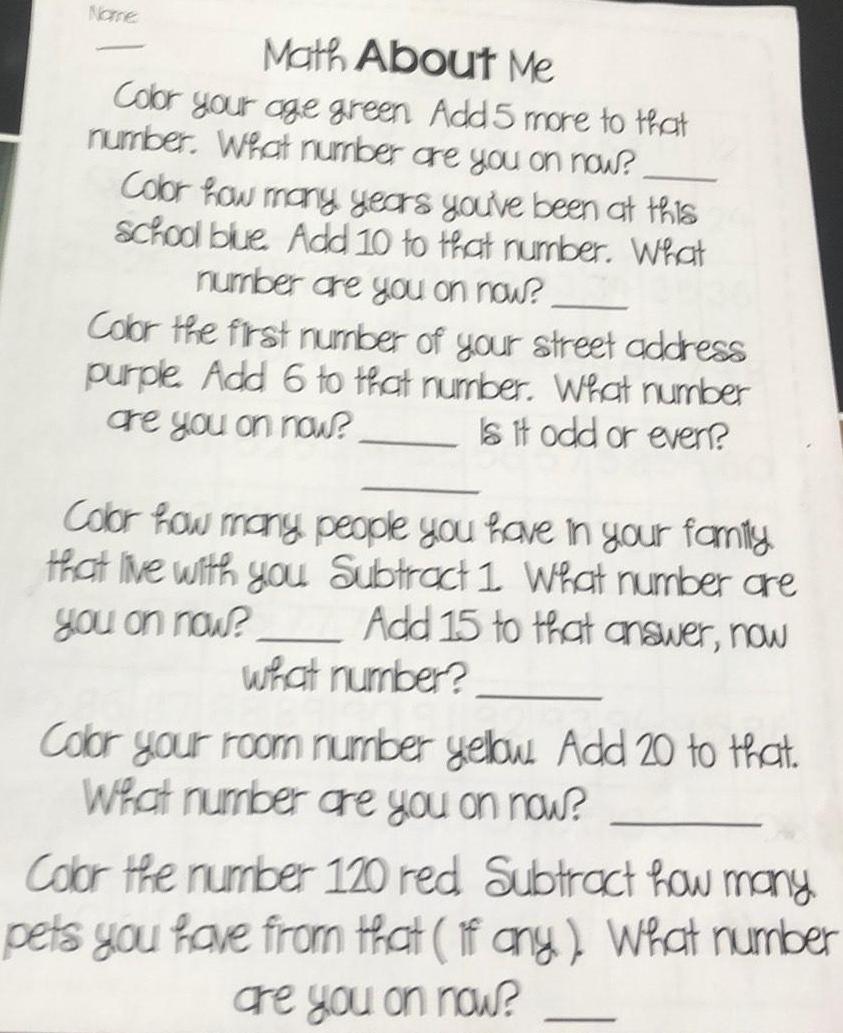 Name
Math About Me
Color your age green. Add 5 more to that
number. What number are you on now?
Color how many years you've been at this
school blue. Add 10 to that number. What
number are you on now?
Color the first number of your street address
purple. Add 6 to that number. What number
are you on now? Is it odd or even?
Color how many people you have in your family
that live with you. Subtract 1. What number are
you on now? Add 15 to that answer, now
what number?
Color your room number yellow. Add 20 to that.
What number are you on now?
Color the number 120 red. Subtract how many
pets you have from that ( if any ). What number
are you on now?